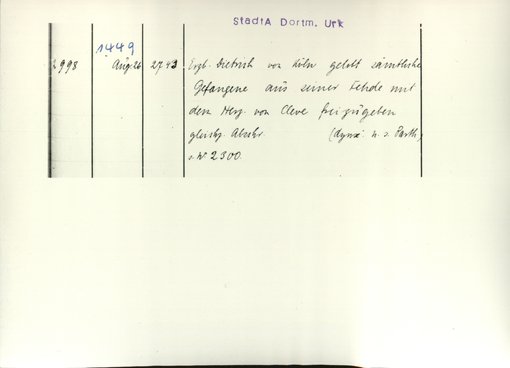 StadtA Dortm. Urk
1449
2998 Aug. 26 2743 Erzb. Dietrich von Köln gelobt sämtliche
Gefangene aus seiner Fehde mit
dem Herz. von Cleve freizugeben
gleichz. Abschr. (
s. Nr 2300.